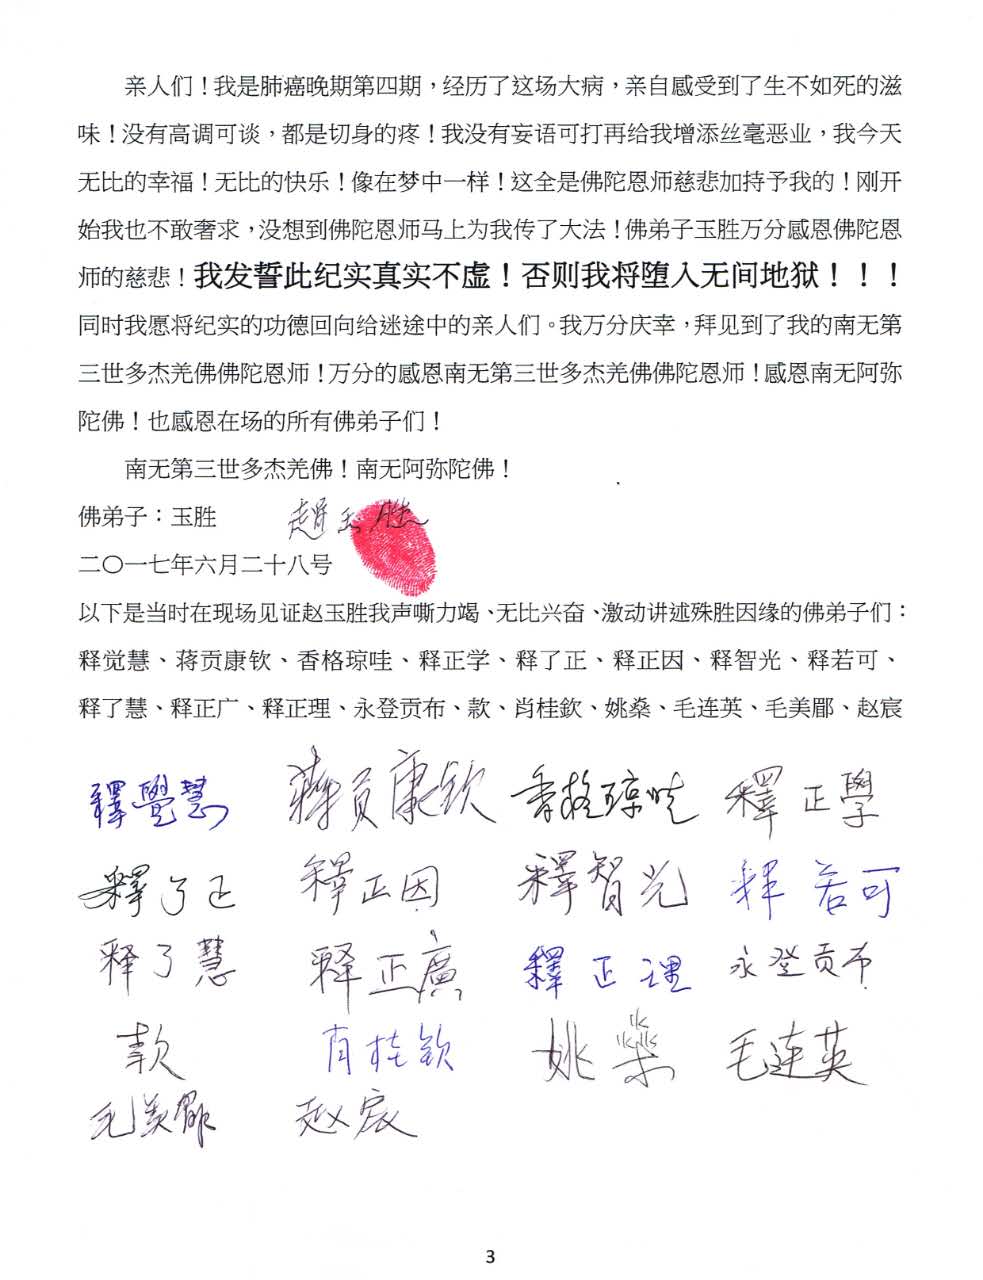 亲人们！我是肺癌晚期第四期，经历了这场大病，亲自感受到了生不如死的滋
味！没有高调可谈，都是切身的疼！我没有妄语可打再给我增添丝毫恶业，我今天
无比的幸福！无比的快乐！像在梦中一样！这全是佛陀恩师慈悲加持予我的！刚开
始我也不敢奢求，没想到佛陀恩师马上为我传了大法！佛弟子玉胜万分感恩佛陀恩
师的慈悲！我发誓此纪实真实不虚！否则我将堕入无间地狱！！！
同时我愿将纪实的功德回向给迷途中的亲人们。我万分庆幸，拜见到了我的南无第
三世多杰羌佛佛陀恩师！万分的感恩南无第三世多杰羌佛佛陀恩师！感恩南无阿弥
陀佛！也感恩在场的所有佛弟子们！
南无第三世多杰羌佛！南无阿弥陀佛！
佛弟子：玉胜 趙玉胜
二〇一七年六月二十八号
以下是当时在现场见证赵玉胜我声嘶力竭、无比兴奋、激动讲述殊胜因缘的佛弟子们：
释觉慧、蒋贡康钦、香格琼哇、释正学、释了正、释正因、释智光、释若可、
释了慧、释正广、释正理、永登贡布、款、肖桂欽、姚桑、毛连英、毛美郿、赵宸
釋覺慧 蒋贡康钦 香格琼哇 釋正學
釋了正 釋正因 釋智光 释若可
释了慧 释正廣 釋正理 永登贡布
款 肖桂钦 姚桑 毛连英
毛美郿 赵宸
3